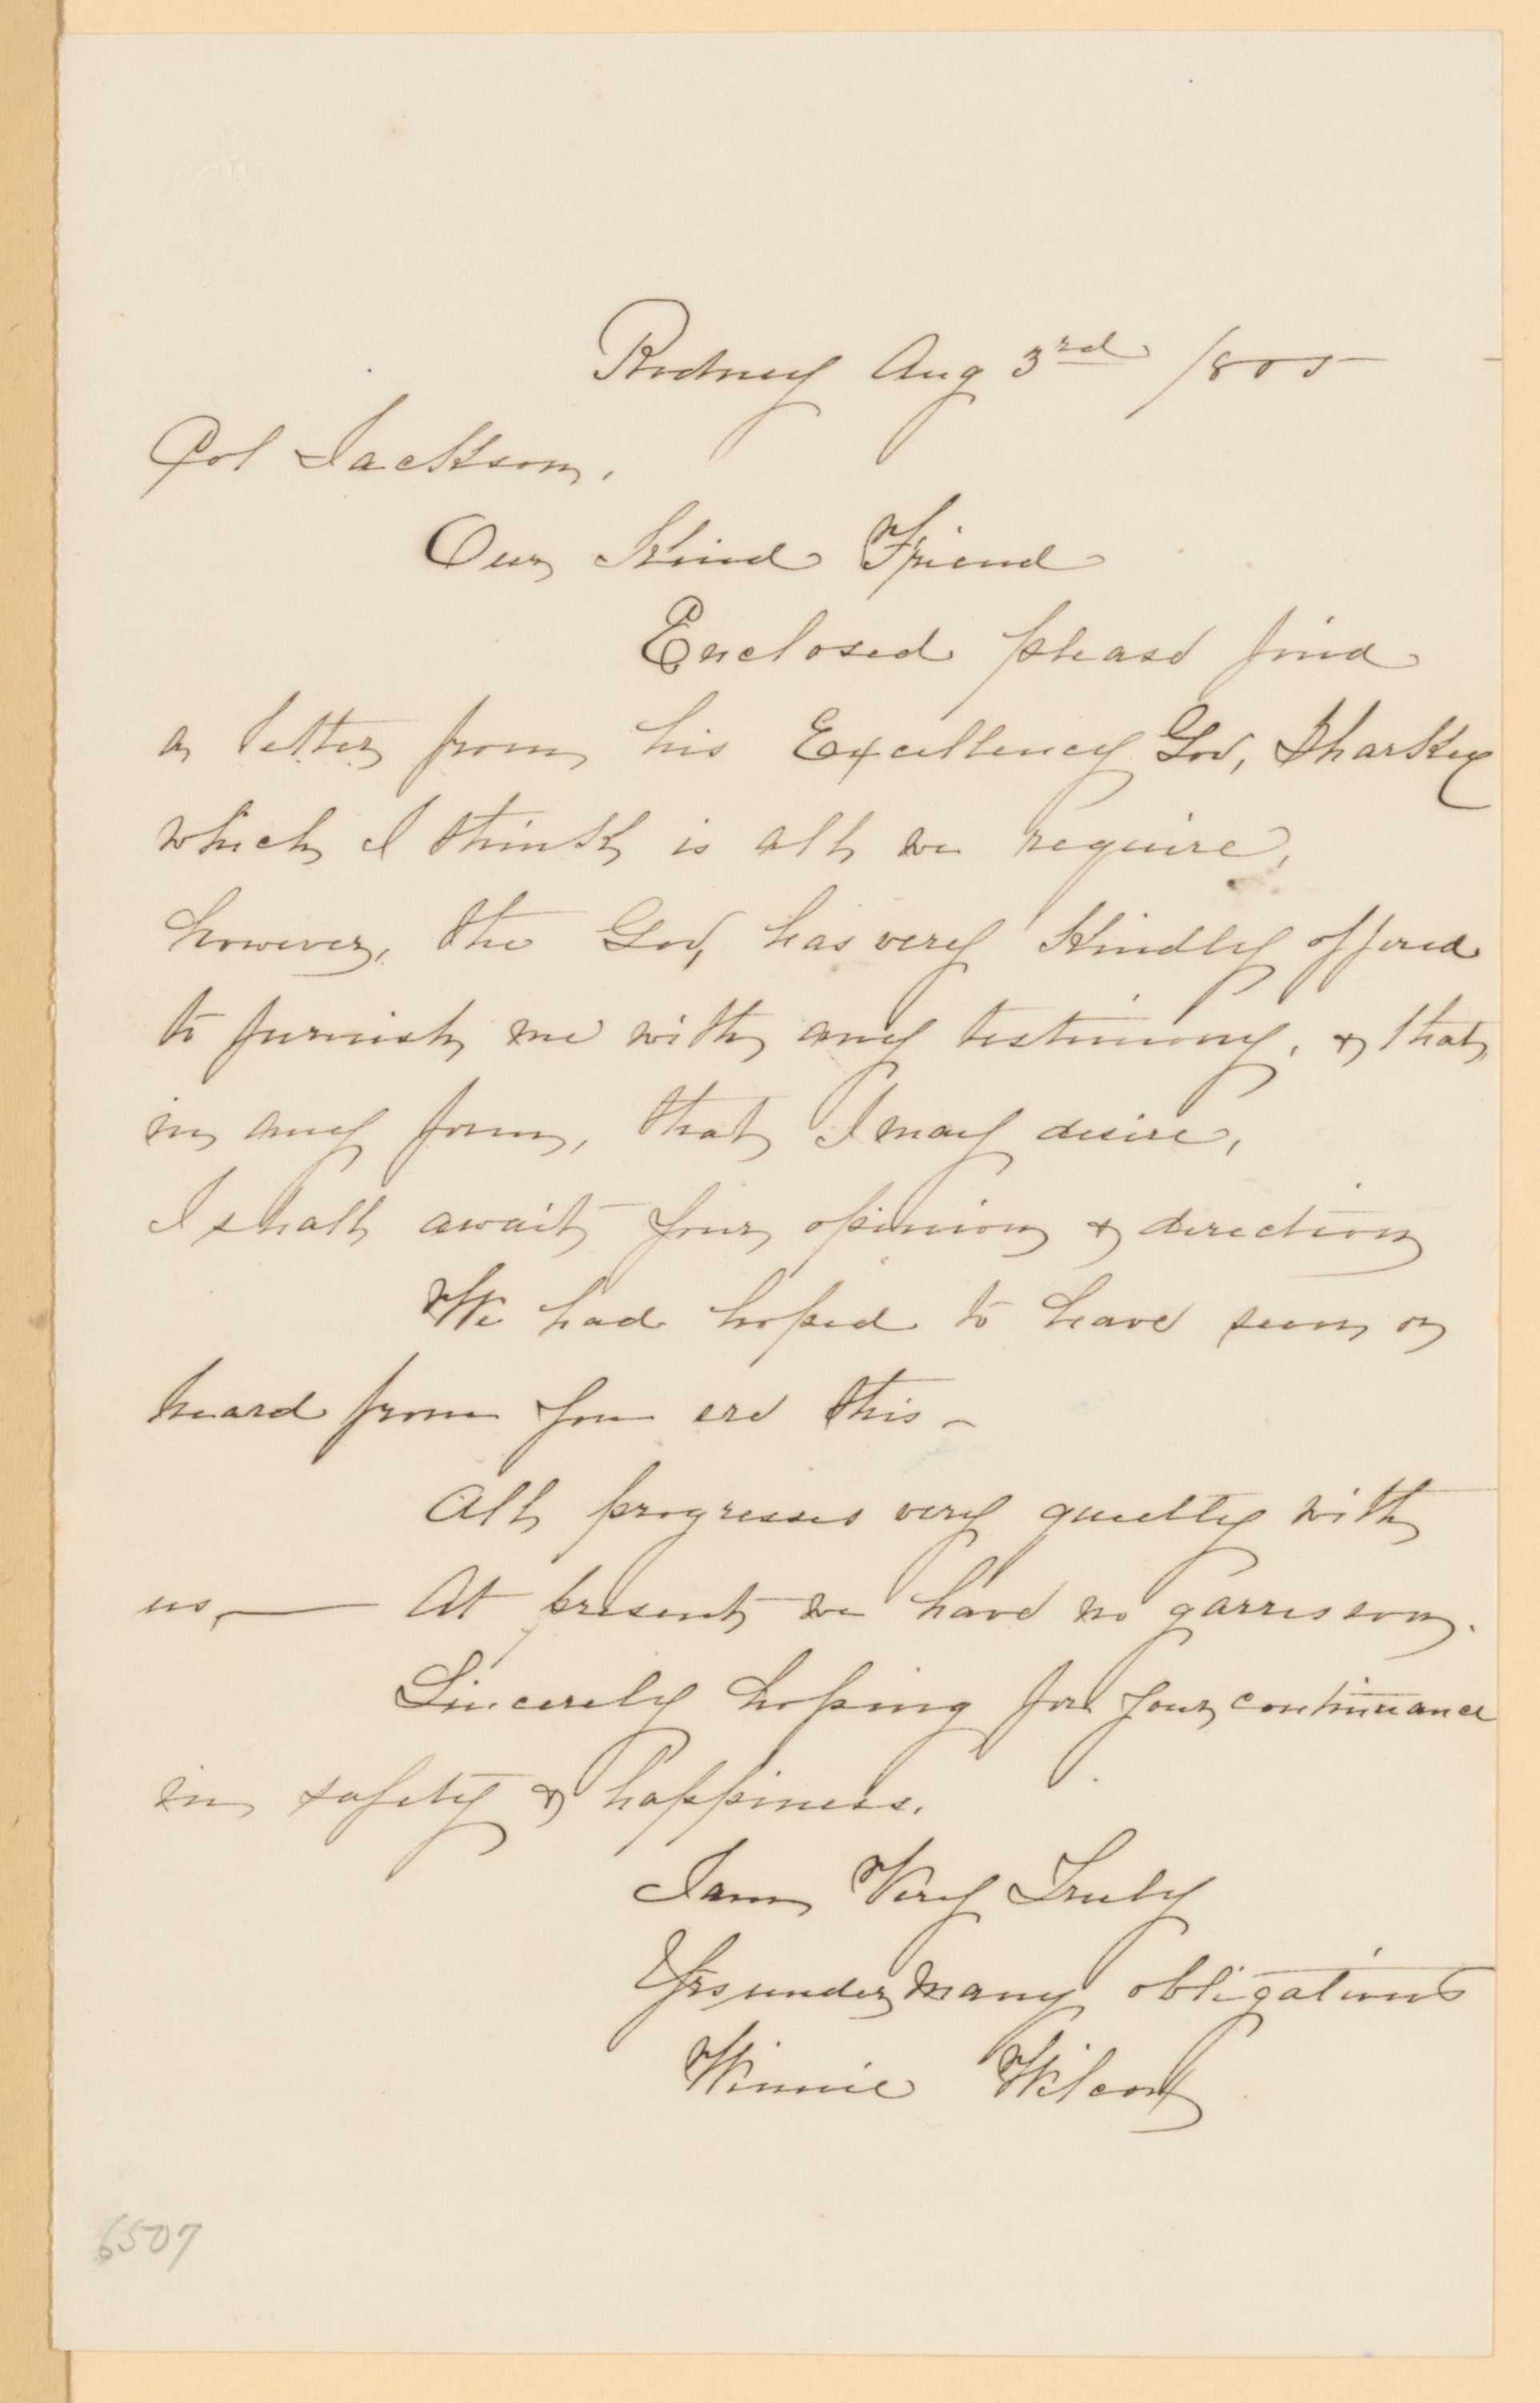 Rodney Aug 3rd 1865
Col Jackson,
Our Kind Friend
Enclosed please find
a letter from his Excellency Gov, Sharkey
which I think is all we require,
however, the Gov, has very kindly offered
to furnish me with any testimony, & that,
in any form, that I may desire,
I shall await your opinion & direction
We had hoped to have seen or
heard from you ere this –
All progresses very quietly with
us, — At present we have no garrison.
Sincerely hoping for your continuance
in safety & happiness.
I am Very Truly
Yrs under many obligations
Winnie Wilcox
6507